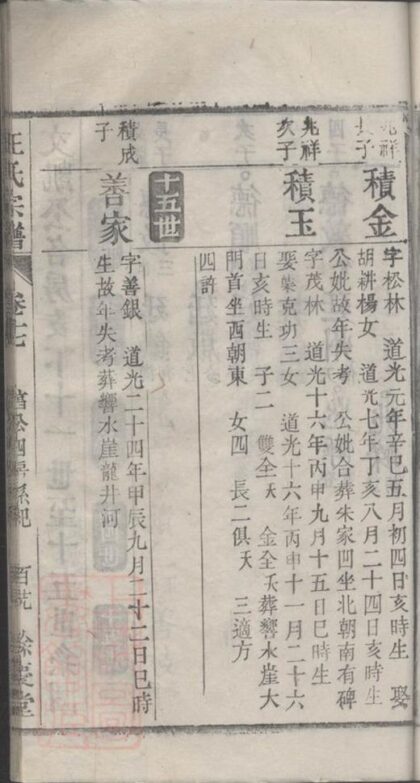 兆祥長子
積金
字松林 道光元年辛巳五月初四日亥時生 娶
胡耕楊女 道光七年丁亥八月二十四日亥時生
公妣故年失考 公妣合葬朱家凹坐北朝南有碑
兆祥次子
積玉
字茂林 道光十六年丙申九月十五日巳時生
娶 克功三女 道光十六年丙申十一月二十六
日亥時生 子二 雙全夭 金全夭葬響水崖大
門首坐西朝東 女四 長二俱夭 三適方
四許
十五世
積成子
善家
字善銀 道光二十四年甲辰九月二十二日巳時
生故年失考葬響水崖龍井河
氏宗譜 卷七 公四房系紀 餘慶堂